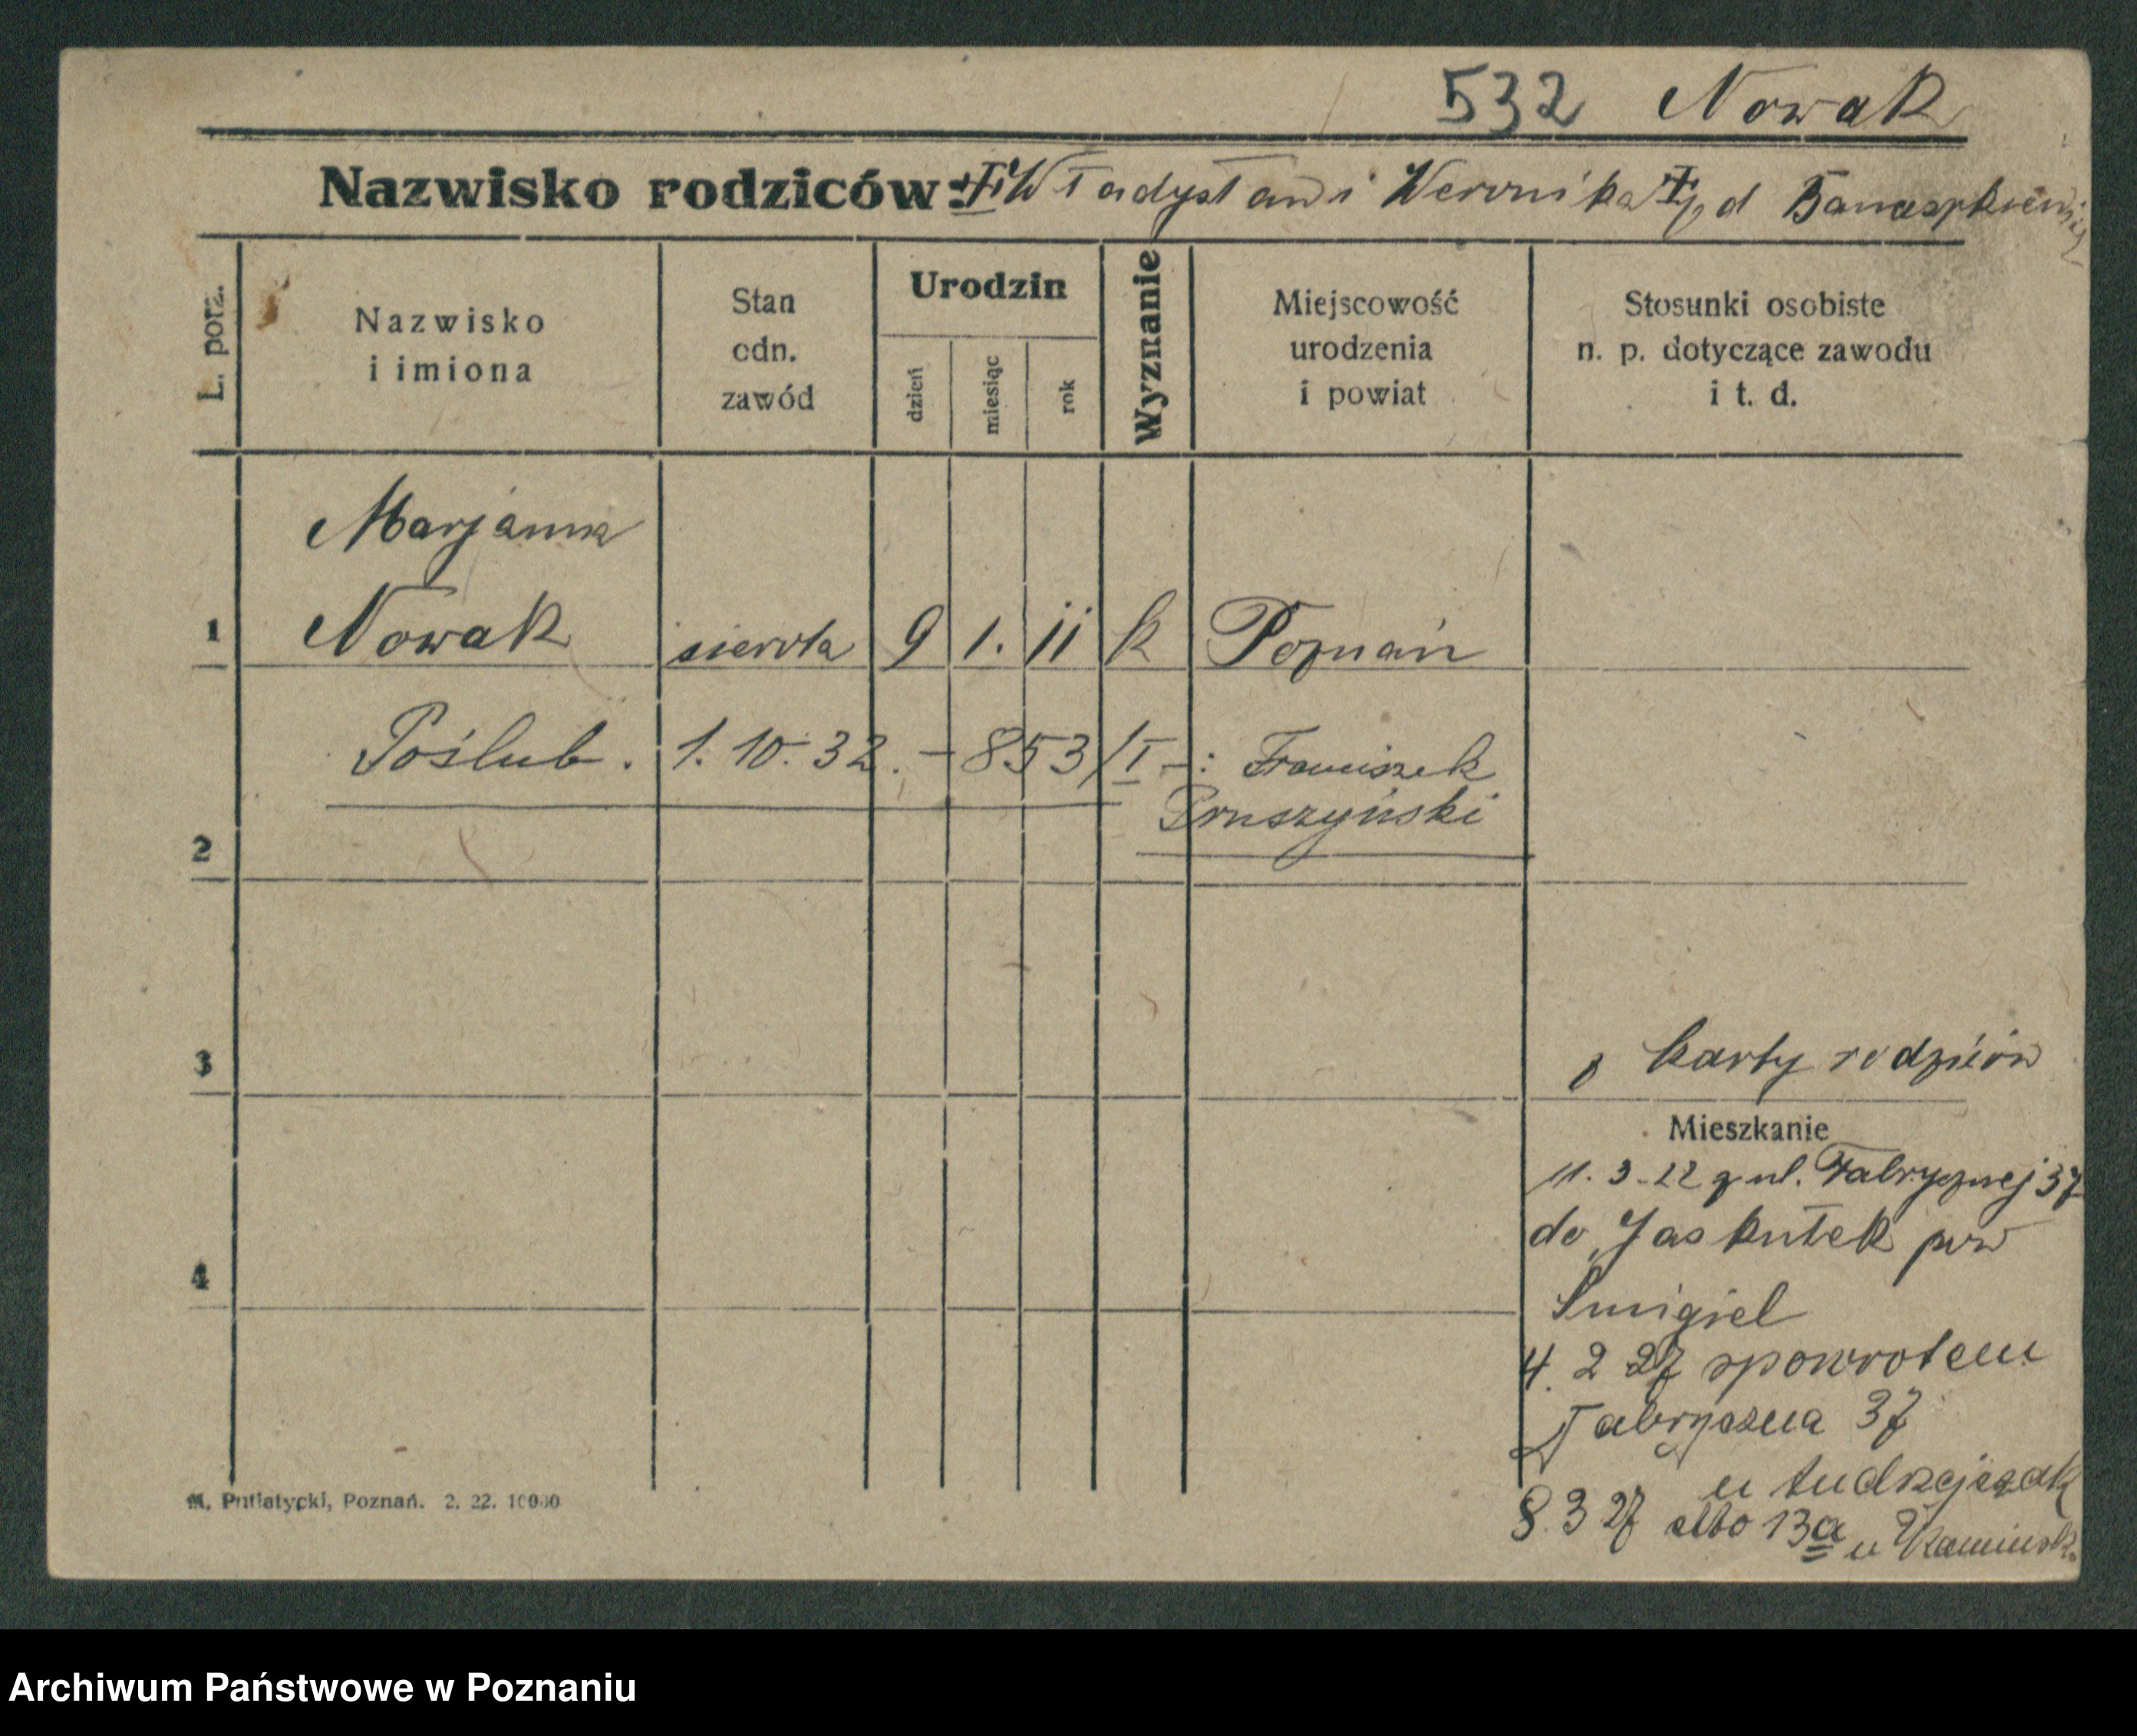 532 Nowak
Nazwisko rodziców: Władysław i Weronika zd Banaszkiewicz
L. porz.
Nazwisko i imiona
Stan odn. zawód
Urodzin
dzień
miesiąc
rok
Wyznanie
Miejscowość urodzenia i powiat
Stosunki osobiste n. p. dotyczące zawodu i t. d.
Marjanna
1 Nowak sierota 9 1. 11 k Poznań
Poślub. 1. 10. 32. – 853/I –: Franciszek
Pruszyński
2
3
karty rodziców
Mieszkanie
11. 3. 22 z ul. Fabrycznej 37
do Jaskułek pow
4
Smigiel
4. 2 27 spowrotem
Fabryczna 37
u Andrzejczak
M. Putiatycki, Poznań. 2. 22. 10000
8. 3 27 albo 13a u Kamińsk
Archiwum Państwowe w Poznaniu